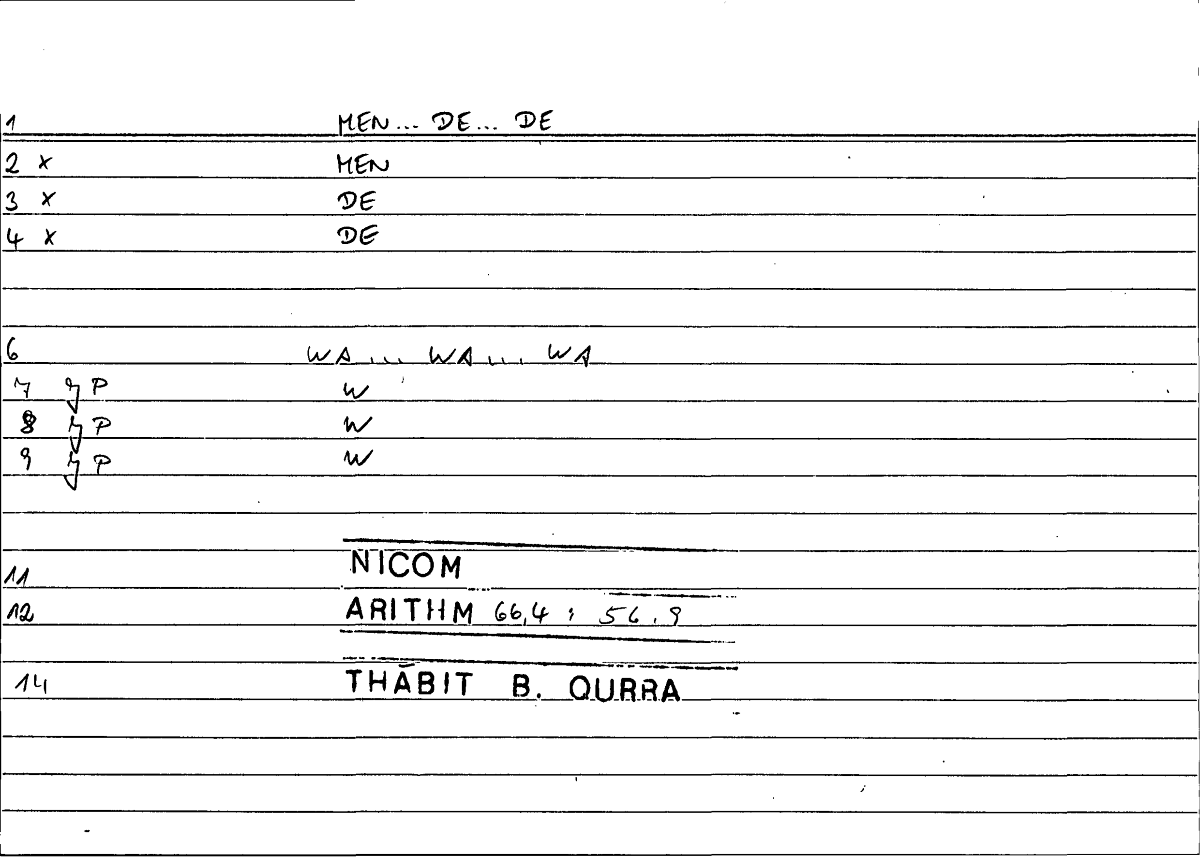 1 MEN... DE... DE
2 x MEN
3 x DE
4 x DE
6 WA... WA... WA
7 P W
8 P W
9 P W
11 NICOM
12 ARITHM 66,4 : 56.9
14 THĀBIT B. QURRA